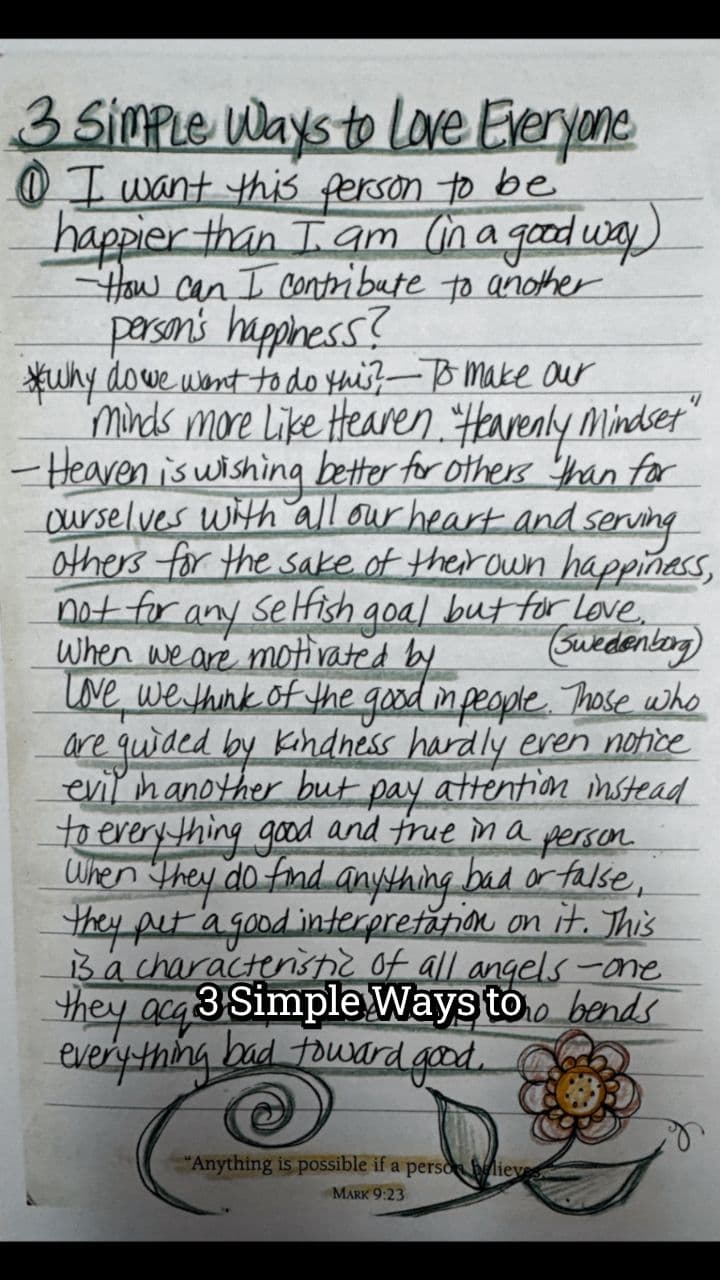 3 Simple Ways to Love Everyone
① I want this person to be
happier than I am (in a good way)
- How can I contribute to another
person's happiness?
*Why do we want to do this? — To make our
minds more like Heaven. "Heavenly Mindset"
- Heaven is wishing better for others than for
ourselves with all our heart and serving
others for the sake of their own happiness,
not for any selfish goal but for Love.
(Swedenborg)
When we are motivated by
Love, we think of the good in people. Those who
are guided by kindness hardly even notice
evil in another but pay attention instead
to everything good and true in a person.
When they do find anything bad or false,
they put a good interpretation on it. This
is a characteristic of all angels - one
they bends
3 Simple Ways to
everything bad toward good.
"Anything is possible if a person believes."
MARK 9:23